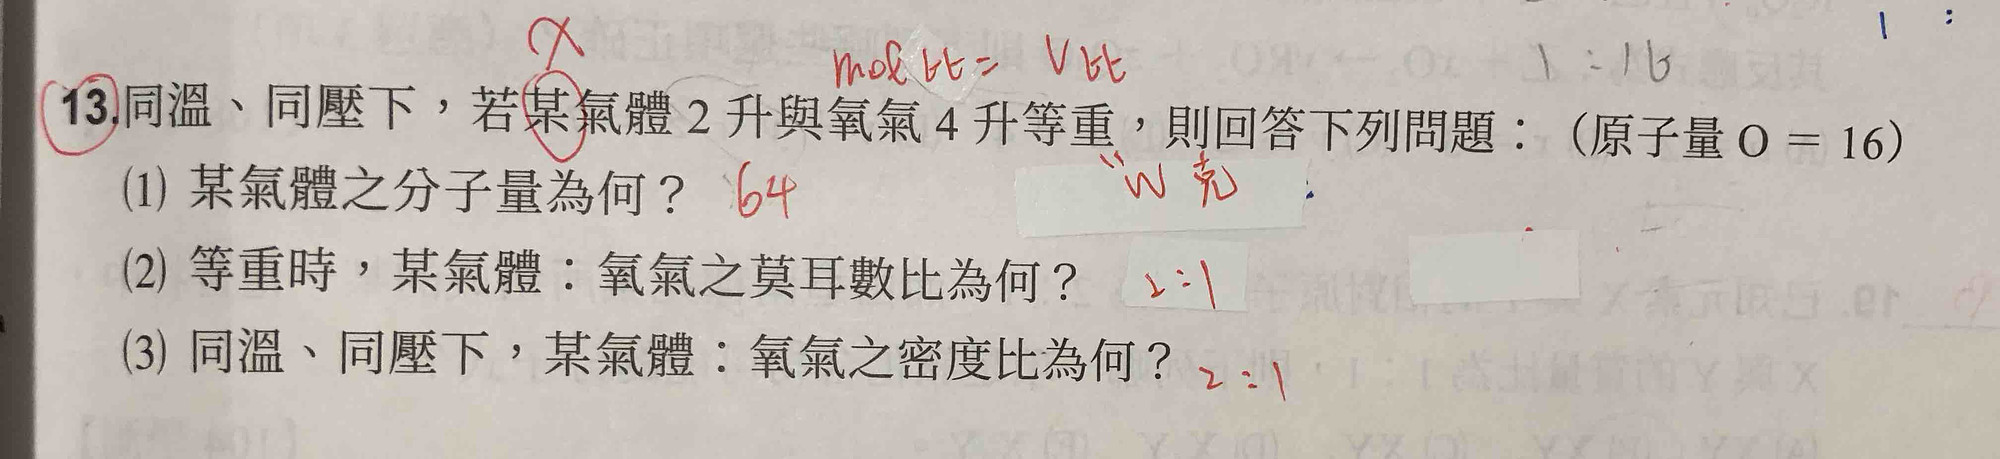 1 :
X
mol 比 = V 比
1 : 16
13. 同溫、同壓下，若某氣體 2 升與氧氣 4 升等重，則回答下列問題：（原子量 O = 16）
W 克
(1) 某氣體之分子量為何？ 64
(2) 等重時，某氣體：氧氣之莫耳數比為何？ 2:1
(3) 同溫、同壓下，某氣體：氧氣之密度比為何？ 2:1